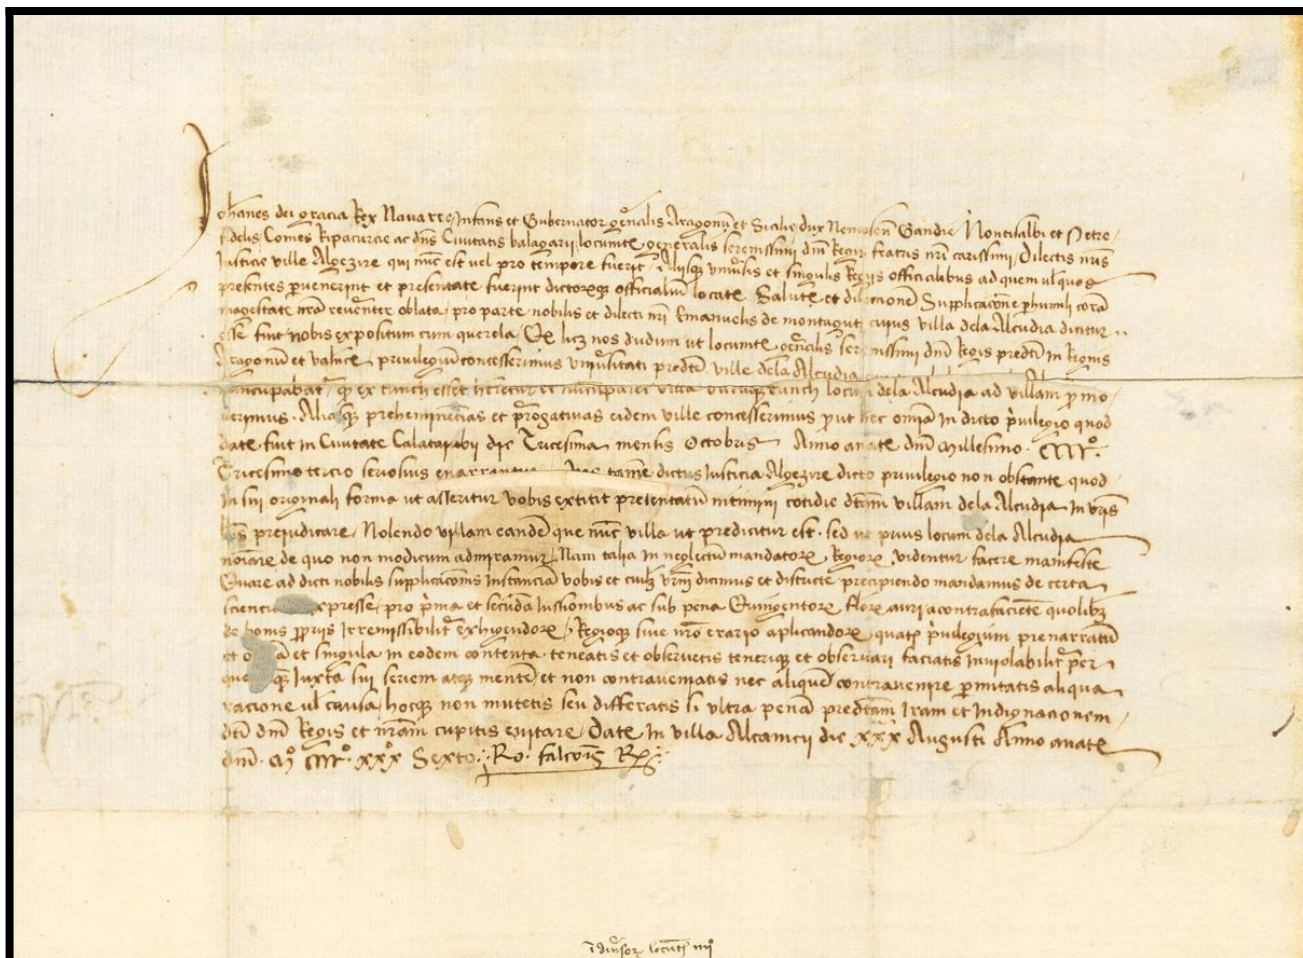 Johanes dei gracia Rex Navarre Infans et Gubernator gn̄alis Aragonū et Sicilie dux Nemosen̄ Gandie Montisalbi et Petre
fidelis Comes Ripacurcie ac dn̄s Civitatis balagarii locumtē generalis serenissimi dn̄i Regis fratris nr̄i carissimi Dilectis nr̄is
Justicie ville Algezire qui nūc est vel pro tempore fuerit Aliisq̨ universis et singulis Regiis officialibus ad quem ul̄ quos
presentes pervenerint et presentate fuerint dictorūq̨ officialiū locatē Salutē et dilectionē Supplicacione p humili corā
magestate nr̄a reverenter oblata pro parte nobilis et dilecti nr̄i Emanuelis de montagut cuius villa dela Alcudia dicitur
esse fuit nobis expositum cum querela Qd̄ licz nos dudum ut locumtē gn̄alis serenissimi dn̄i Regis predcī in Regnis
Aragonū et valn̄cie privilegiū concesserimus universitati predcē ville dela Alcudia
nuncupabat̄ qd̄ ex tunch esset loci dela Alcudia ad villam p mo
verimus Aliasq̨ preheminēcias et prorogativas eidem ville concesserimus put hec om̄ia in dicto privilegio quod
date fuit in Civitate Calatajubii die Tricesima mensis Octobris Anno a natē dn̄i Millesimo CCCCº
Tricesimo tercio seriosius enarrantur tamē dictus Justicia Algezire dicto privilegio non obstante quod
in sui originali forma ut asseritur vobis extitit presentatū nitimini cotidie dcām villam dela Alcudia in vr̄is
prejudicare Nolendo villam eandē que nūc villa ut predicitur est sed ut prius locum dela Alcudia
noīare de quo non modicum admiramur Nam talia in neglectū mandatorꝝ Regiorꝝ videntur facere manifeste
Quare ad dicti nobilis supplicacōnis instanciā vobis et cuilz vr̄m dicimus et districte precipiendo mandamus de certa
scienti expresse pro p̄ma et secūda jussionibus ac sub pena Quingentorꝝ florꝝ auri a contrafaciētē quolibz
de bonis ppriis irremissibilit̄ exhigendorꝝ Regioq̨ sive nr̄o erario aplicandorꝝ quatꝫ privilegium prenarratū
et o ā et singula in eodem contenta teneatis et observetis tenerīq̨ et observari faciatis inviolabilit̄ per
que q̨ juxta sui seriem atq̨ mentē et non contraveniatis nec aliquē contravenire pmitatis aliqua
racione ul̄ causa hocq̨ non mutetis seu differatis si ultra penā predcām iram et indignacionem
dcī dn̄i Regis et nr̄am cupitis evitare Date in villa Alcanicii die xxx Augusti Anno a natē
dn̄i Mº CCCCº xxxº Sexto Ro. falconȝ Rx̄
ī diversorꝝ locūtē iiiiº